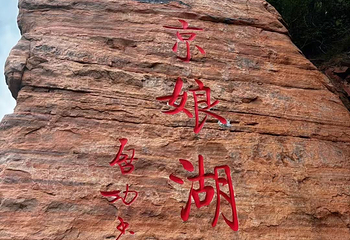 京娘湖
启功书